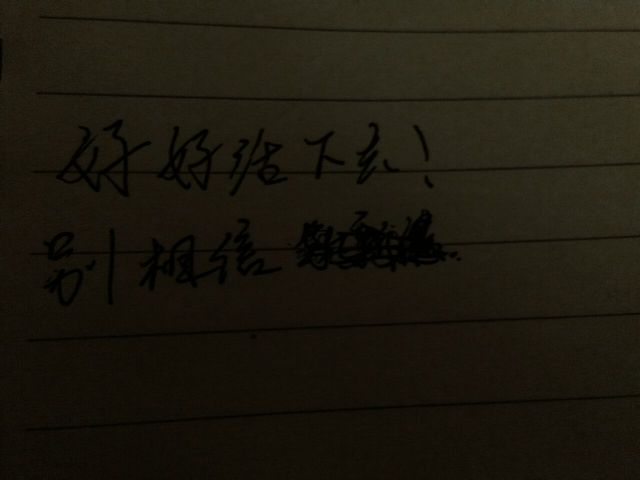 好好活下去！
别相信